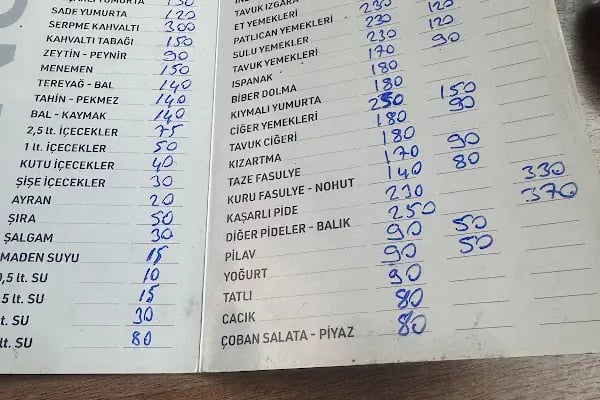 YUMURTA
SADE YUMURTA 120
SERPME KAHVALTI 300
KAHVALTI TABAĞI 150
ZEYTİN - PEYNİR 90
MENEMEN 150
TEREYAĞ - BAL 140
TAHİN - PEKMEZ 140
BAL - KAYMAK 140
2,5 lt. İÇECEKLER 75
1 lt. İÇECEKLER 50
KUTU İÇECEKLER 40
ŞİŞE İÇECEKLER 30
AYRAN 20
ŞIRA 50
ŞALGAM 30
MADEN SUYU 15
,5 lt. SU 10
5 lt. SU 15
lt. SU 30
lt. SU 80
TAVUK IZGARA
ET YEMEKLERİ
PATLICAN YEMEKLERİ 230 120
SULU YEMEKLER 230 120
TAVUK YEMEKLERİ 230 90
ISPANAK 170
BİBER DOLMA 180
KIYMALI YUMURTA 180
CİĞER YEMEKLERİ 250 150
TAVUK CİĞERİ 180 90
KIZARTMA 180
TAZE FASULYE 170 90
KURU FASULYE - NOHUT 140 80
KAŞARLI PİDE 230 330
DİĞER PİDELER - BALIK 250 370
PİLAV 90 50
YOĞURT 90 50
TATLI 90
CACIK 80
ÇOBAN SALATA - PİYAZ 80